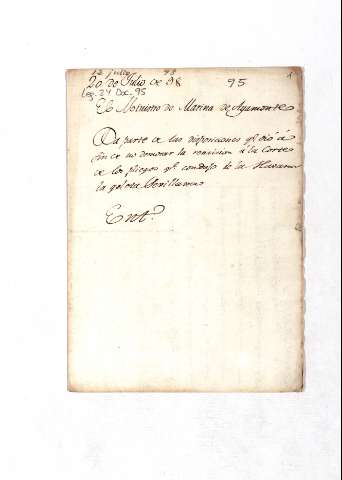 12 julio 98
20 de Julio de 98
95
Leg. 24 Doc. 95
El Ministro de Marina de Ayamonte
Da parte de las disposiciones qe. dió á
fin de no demorar la remision á la Corte
de los pliegos qe. condujo de la Havana
la goleta Sevillana
Entº.